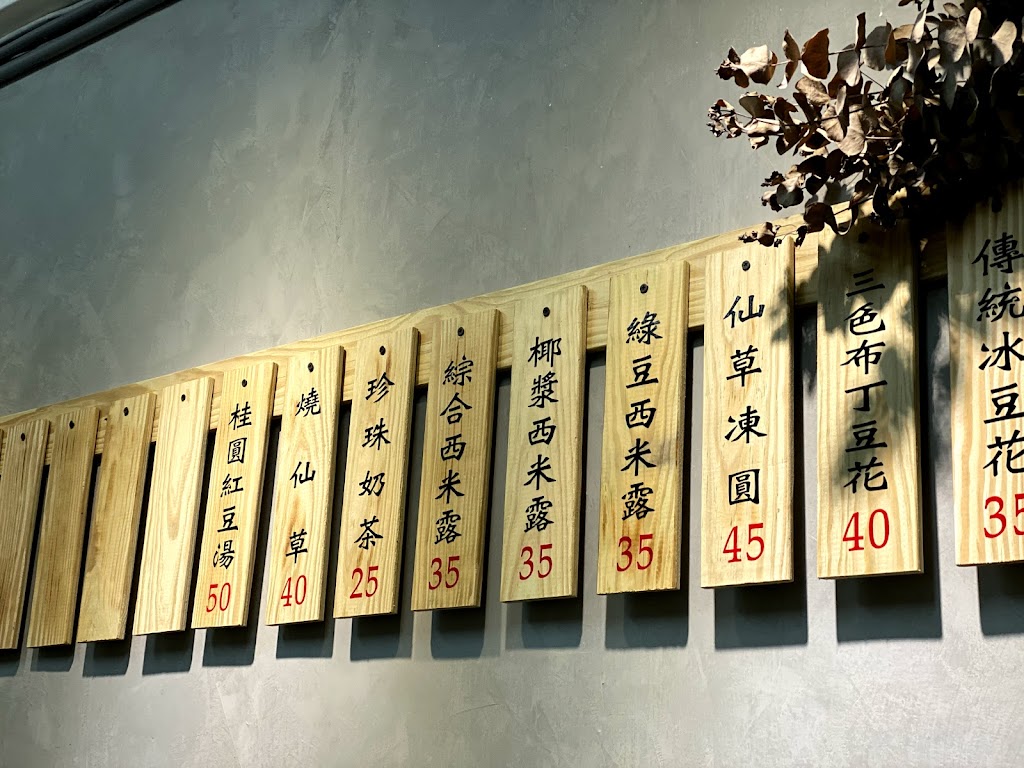 傳統冰豆花
35
三色布丁豆花
40
仙草凍圓
45
綠豆西米露
35
椰漿西米露
35
綜合西米露
35
珍珠奶茶
25
燒仙草
40
桂圓紅豆湯
50